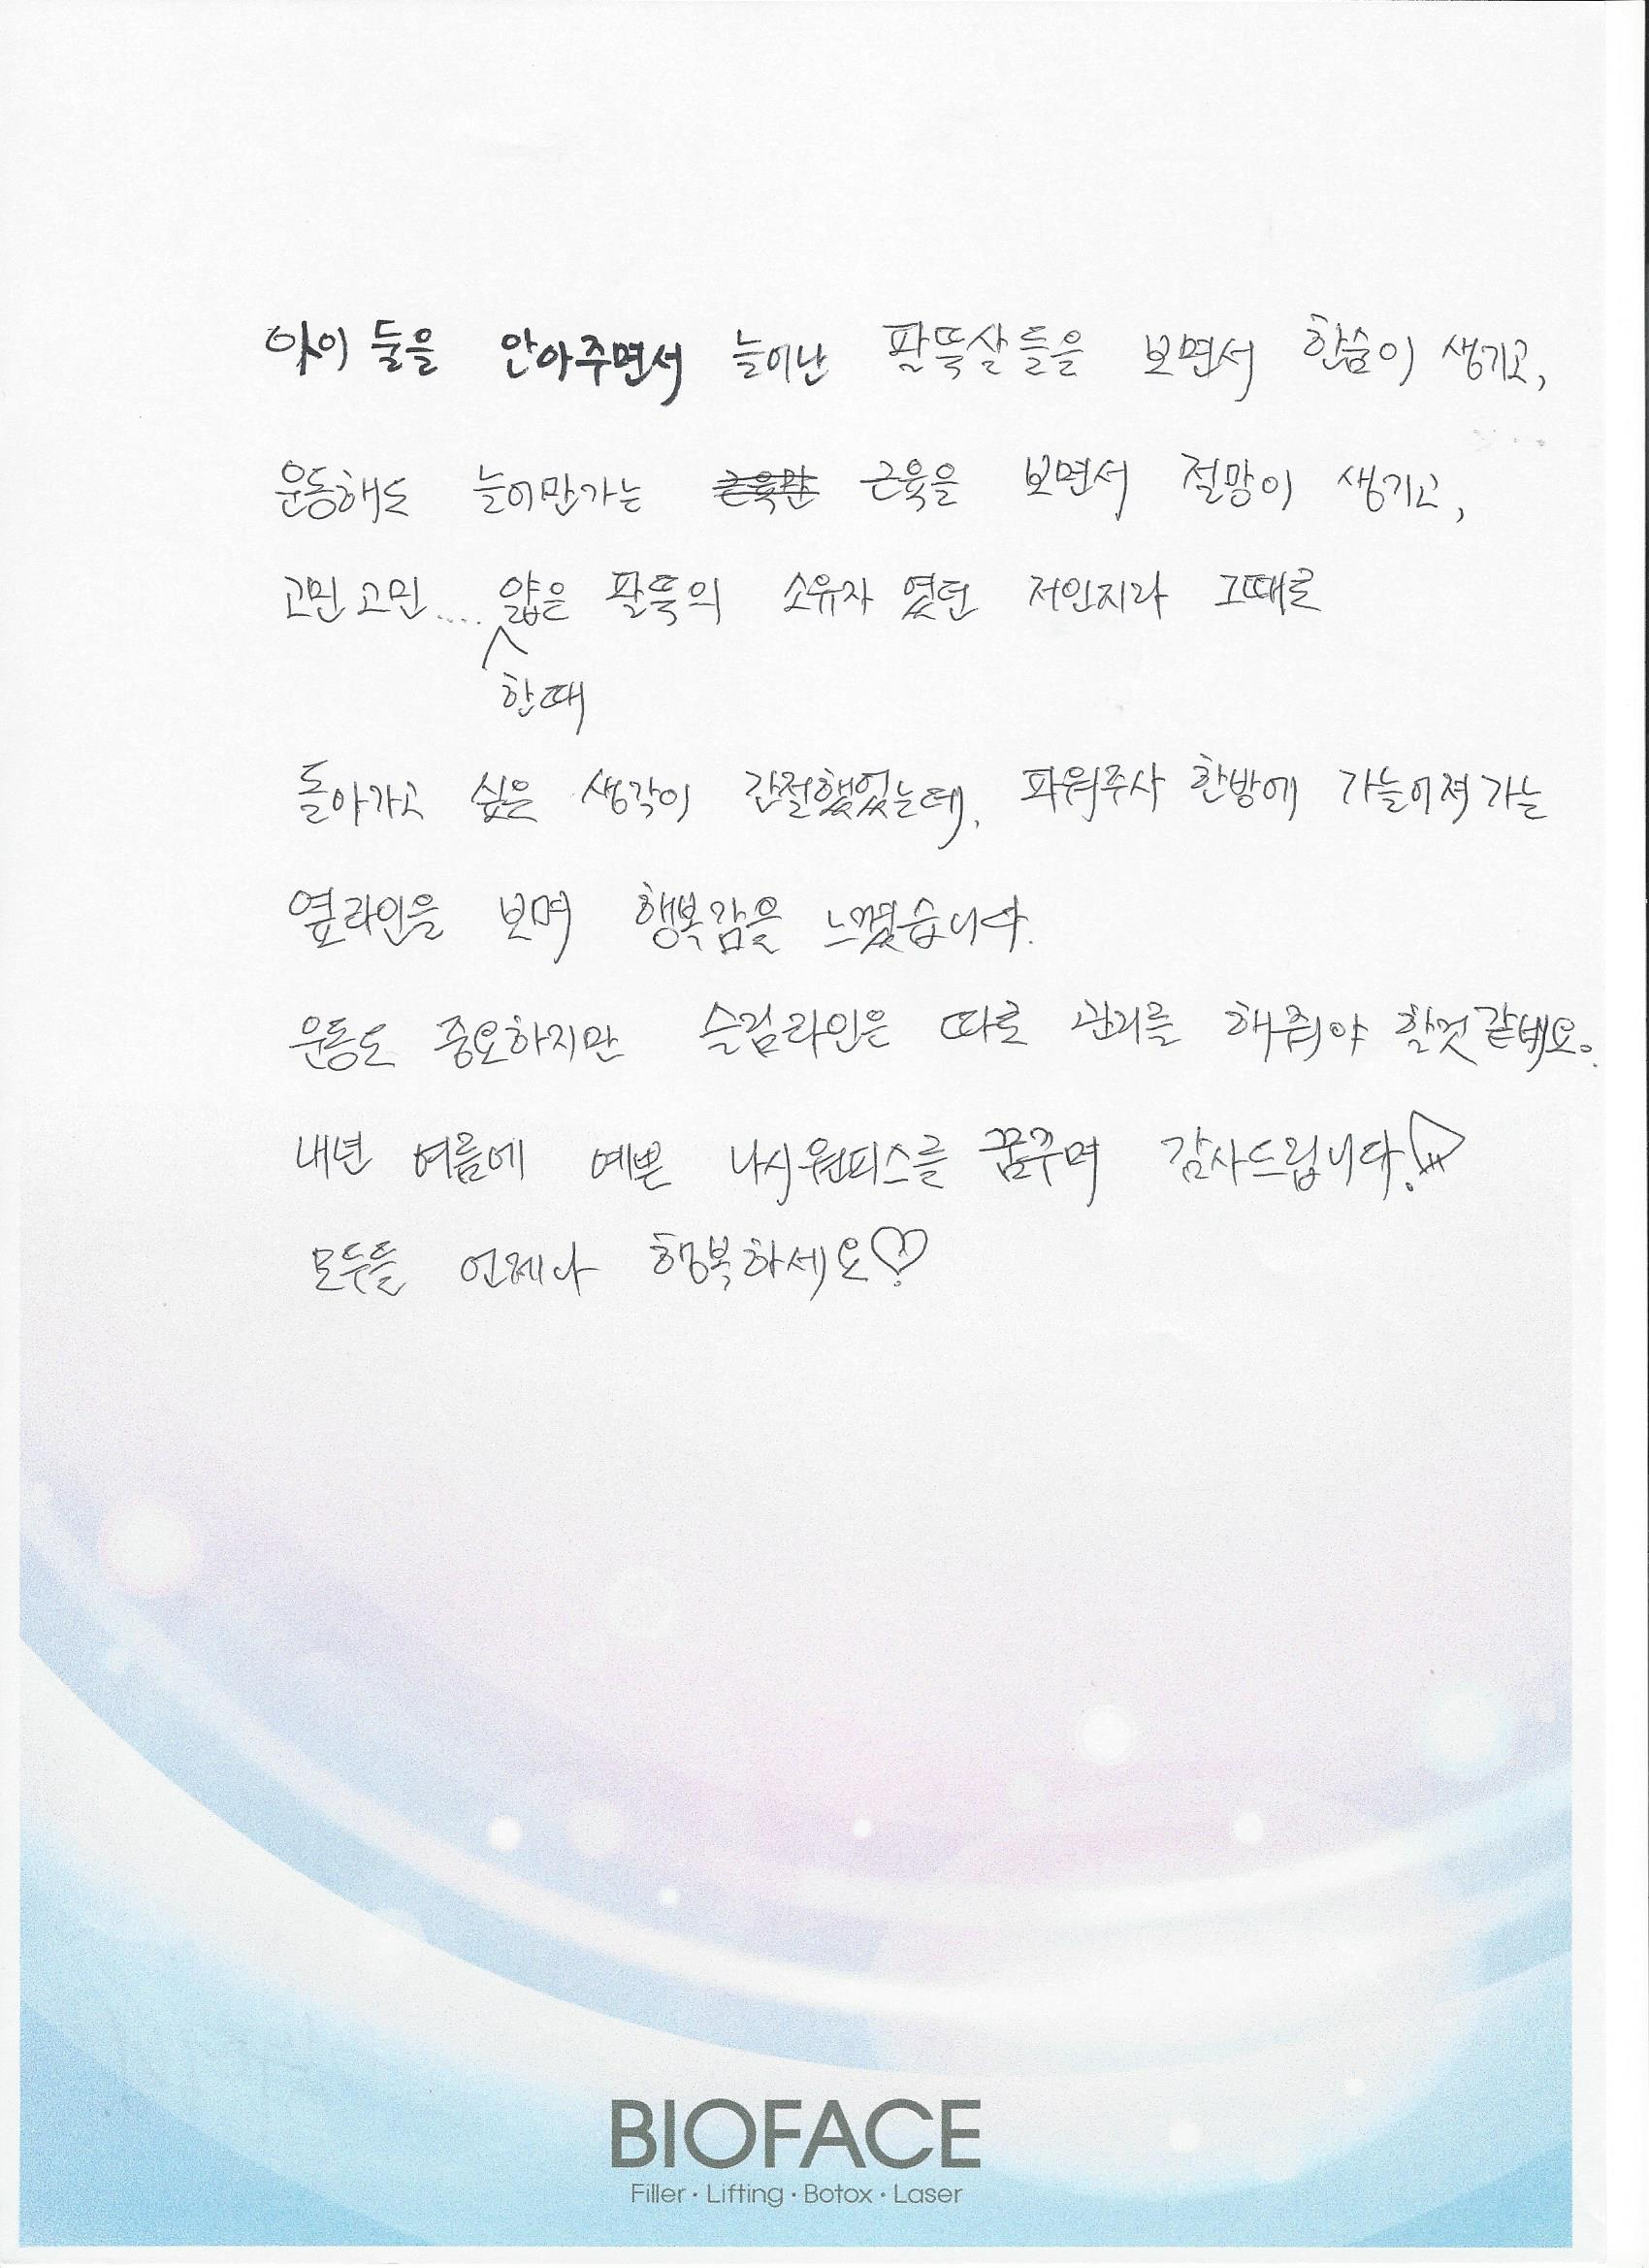 아이 둘을 안아주면서 늘어난 팔뚝살들을 보면서 한숨이 생기고,
운동해도 늘어만가는 근육만 근육을 보면서 절망이 생기고,
고민고민.... 얇은 팔뚝의 소유자 였던 저인지라 그때로
한때
돌아가고 싶은 생각이 간절했었는데, 파워주사 한방에 가늘어져가는
옆라인을 보며 행복감을 느꼈습니다.
운동도 중요하지만 슬림라인은 따로 관리를 해줘야 할것같네요.
내년 여름에 예쁜 나시원피스를 꿈꾸며 감사드립니다!
모두들 언제나 행복하세요♡
BIOFACE
Filler · Lifting · Botox · Laser